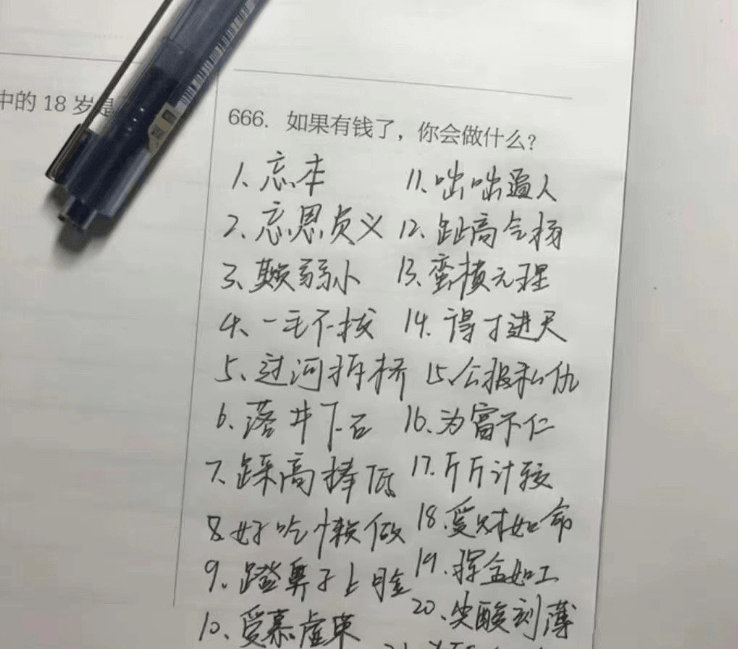 中的 18 岁是
666. 如果有钱了，你会做什么？
1. 忘本
2. 忘恩负义
3. 欺弱小
4. 一毛不拔
5. 过河拆桥
6. 落井下石
7. 踩高捧低
8. 好吃懒做
9. 蹬鼻子上脸
10. 爱慕虚荣
11. 咄咄逼人
12. 趾高气扬
13. 蛮横无理
14. 得寸进尺
15. 公报私仇
16. 为富不仁
17. 斤斤计较
18. 爱财如命
19. 挥金如土
20. 尖酸刻薄